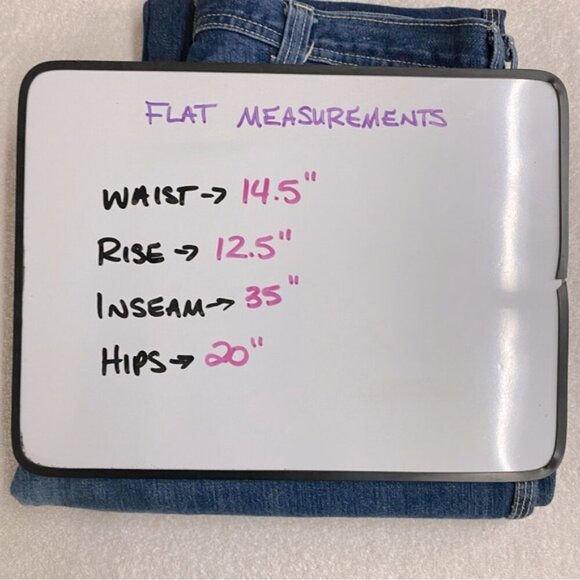 FLAT MEASUREMENTS
WAIST→ 14.5"
RISE → 12.5"
INSEAM→ 35"
HIPS→ 20"